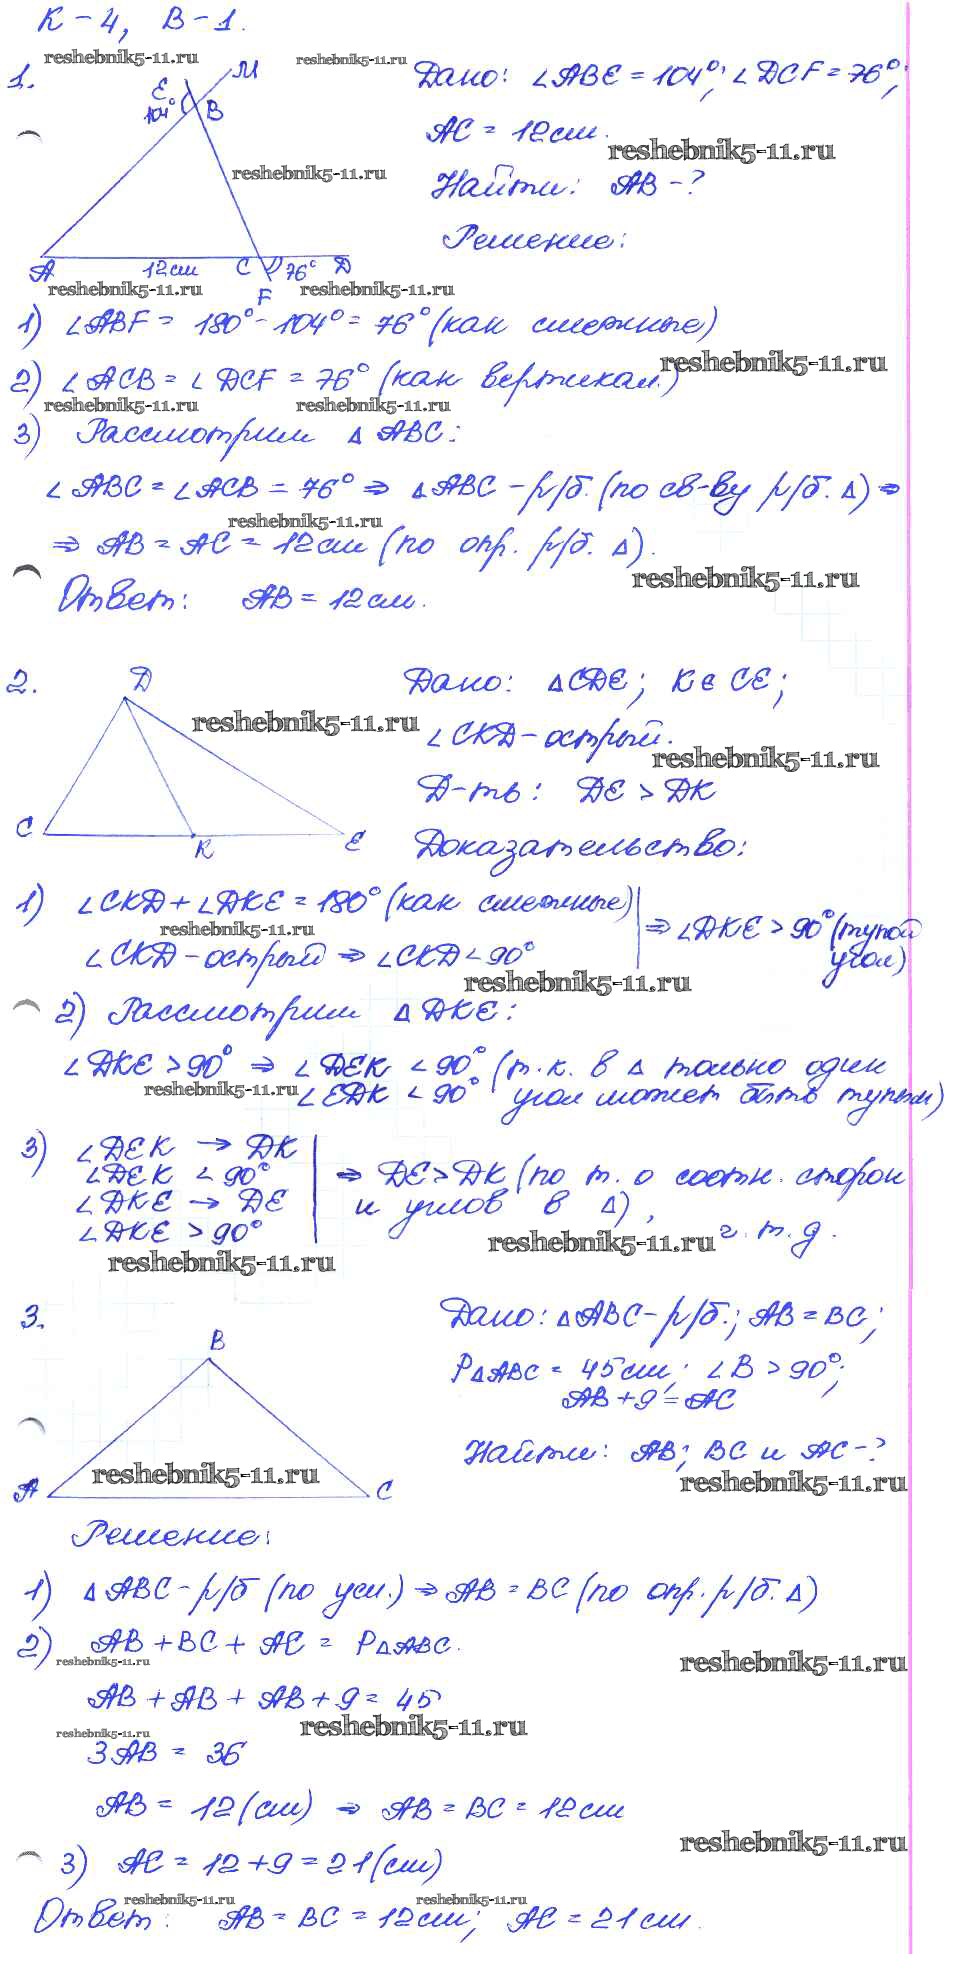 К – 4, В – 1.
reshebnik5-11.ru reshebnik5-11.ru
1.
М
E
104°
B
A
12 см
C
76°
D
F
Дано: ∠ABE = 104°; ∠DCF = 76°;
AC = 12 см.
reshebnik5-11.ru
reshebnik5-11.ru
Найти: AB – ?
Решение:
reshebnik5-11.ru reshebnik5-11.ru
1) ∠ABF = 180° – 104° = 76° (как смежные)
reshebnik5-11.ru
2) ∠ACB = ∠DCF = 76° (как вертикал.)
reshebnik5-11.ru reshebnik5-11.ru
3) Рассмотрим △ABC:
∠ABC = ∠ACB = 76° ⇒ △ABC – р/б. (по св-ву р/б. △) ⇒
reshebnik5-11.ru
⇒ AB = AC = 12 см (по опр. р/б. △).
reshebnik5-11.ru
Ответ: AB = 12 см.
2.
D
C
K
E
reshebnik5-11.ru
Дано: △CDE; K ∈ CE;
∠CKD – острый.
reshebnik5-11.ru
Д-ть: DE > DK
Доказательство:
1) ∠CKD + ∠DKE = 180° (как смежные)
reshebnik5-11.ru
∠CKD – острый ⇒ ∠CKD < 90°
⇒ ∠DKE > 90° (тупой
угол)
reshebnik5-11.ru
2) Рассмотрим △DKE:
∠DKE > 90° ⇒ ∠DEK < 90° (т.к. в △ только один
reshebnik5-11.ru
∠EDK < 90° угол может быть тупым)
3) ∠DEK → DK
∠DEK < 90°
∠DKE → DE
∠DKE > 90°
⇒ DE > DK (по т. о соотн. сторон
и углов в △),
ч. т. д.
reshebnik5-11.ru
reshebnik5-11.ru
3.
B
A
C
reshebnik5-11.ru
Дано: △ABC – р/б.; AB = BC;
P△ABC = 45 см; ∠B > 90°;
AB + 9 = AC
Найти: AB; BC и AC – ?
reshebnik5-11.ru
Решение:
1) △ABC – р/б (по усл.) ⇒ AB = BC (по опр. р/б. △)
2) AB + BC + AC = P△ABC.
reshebnik5-11.ru reshebnik5-11.ru
AB + AB + AB + 9 = 45
reshebnik5-11.ru reshebnik5-11.ru
3AB = 36
AB = 12 (см) ⇒ AB = BC = 12 см
reshebnik5-11.ru
3) AC = 12 + 9 = 21 (см)
reshebnik5-11.ru reshebnik5-11.ru
Ответ: AB = BC = 12 см; AC = 21 см.